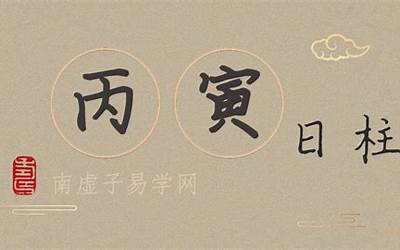 丙寅日柱
南虚子易学网